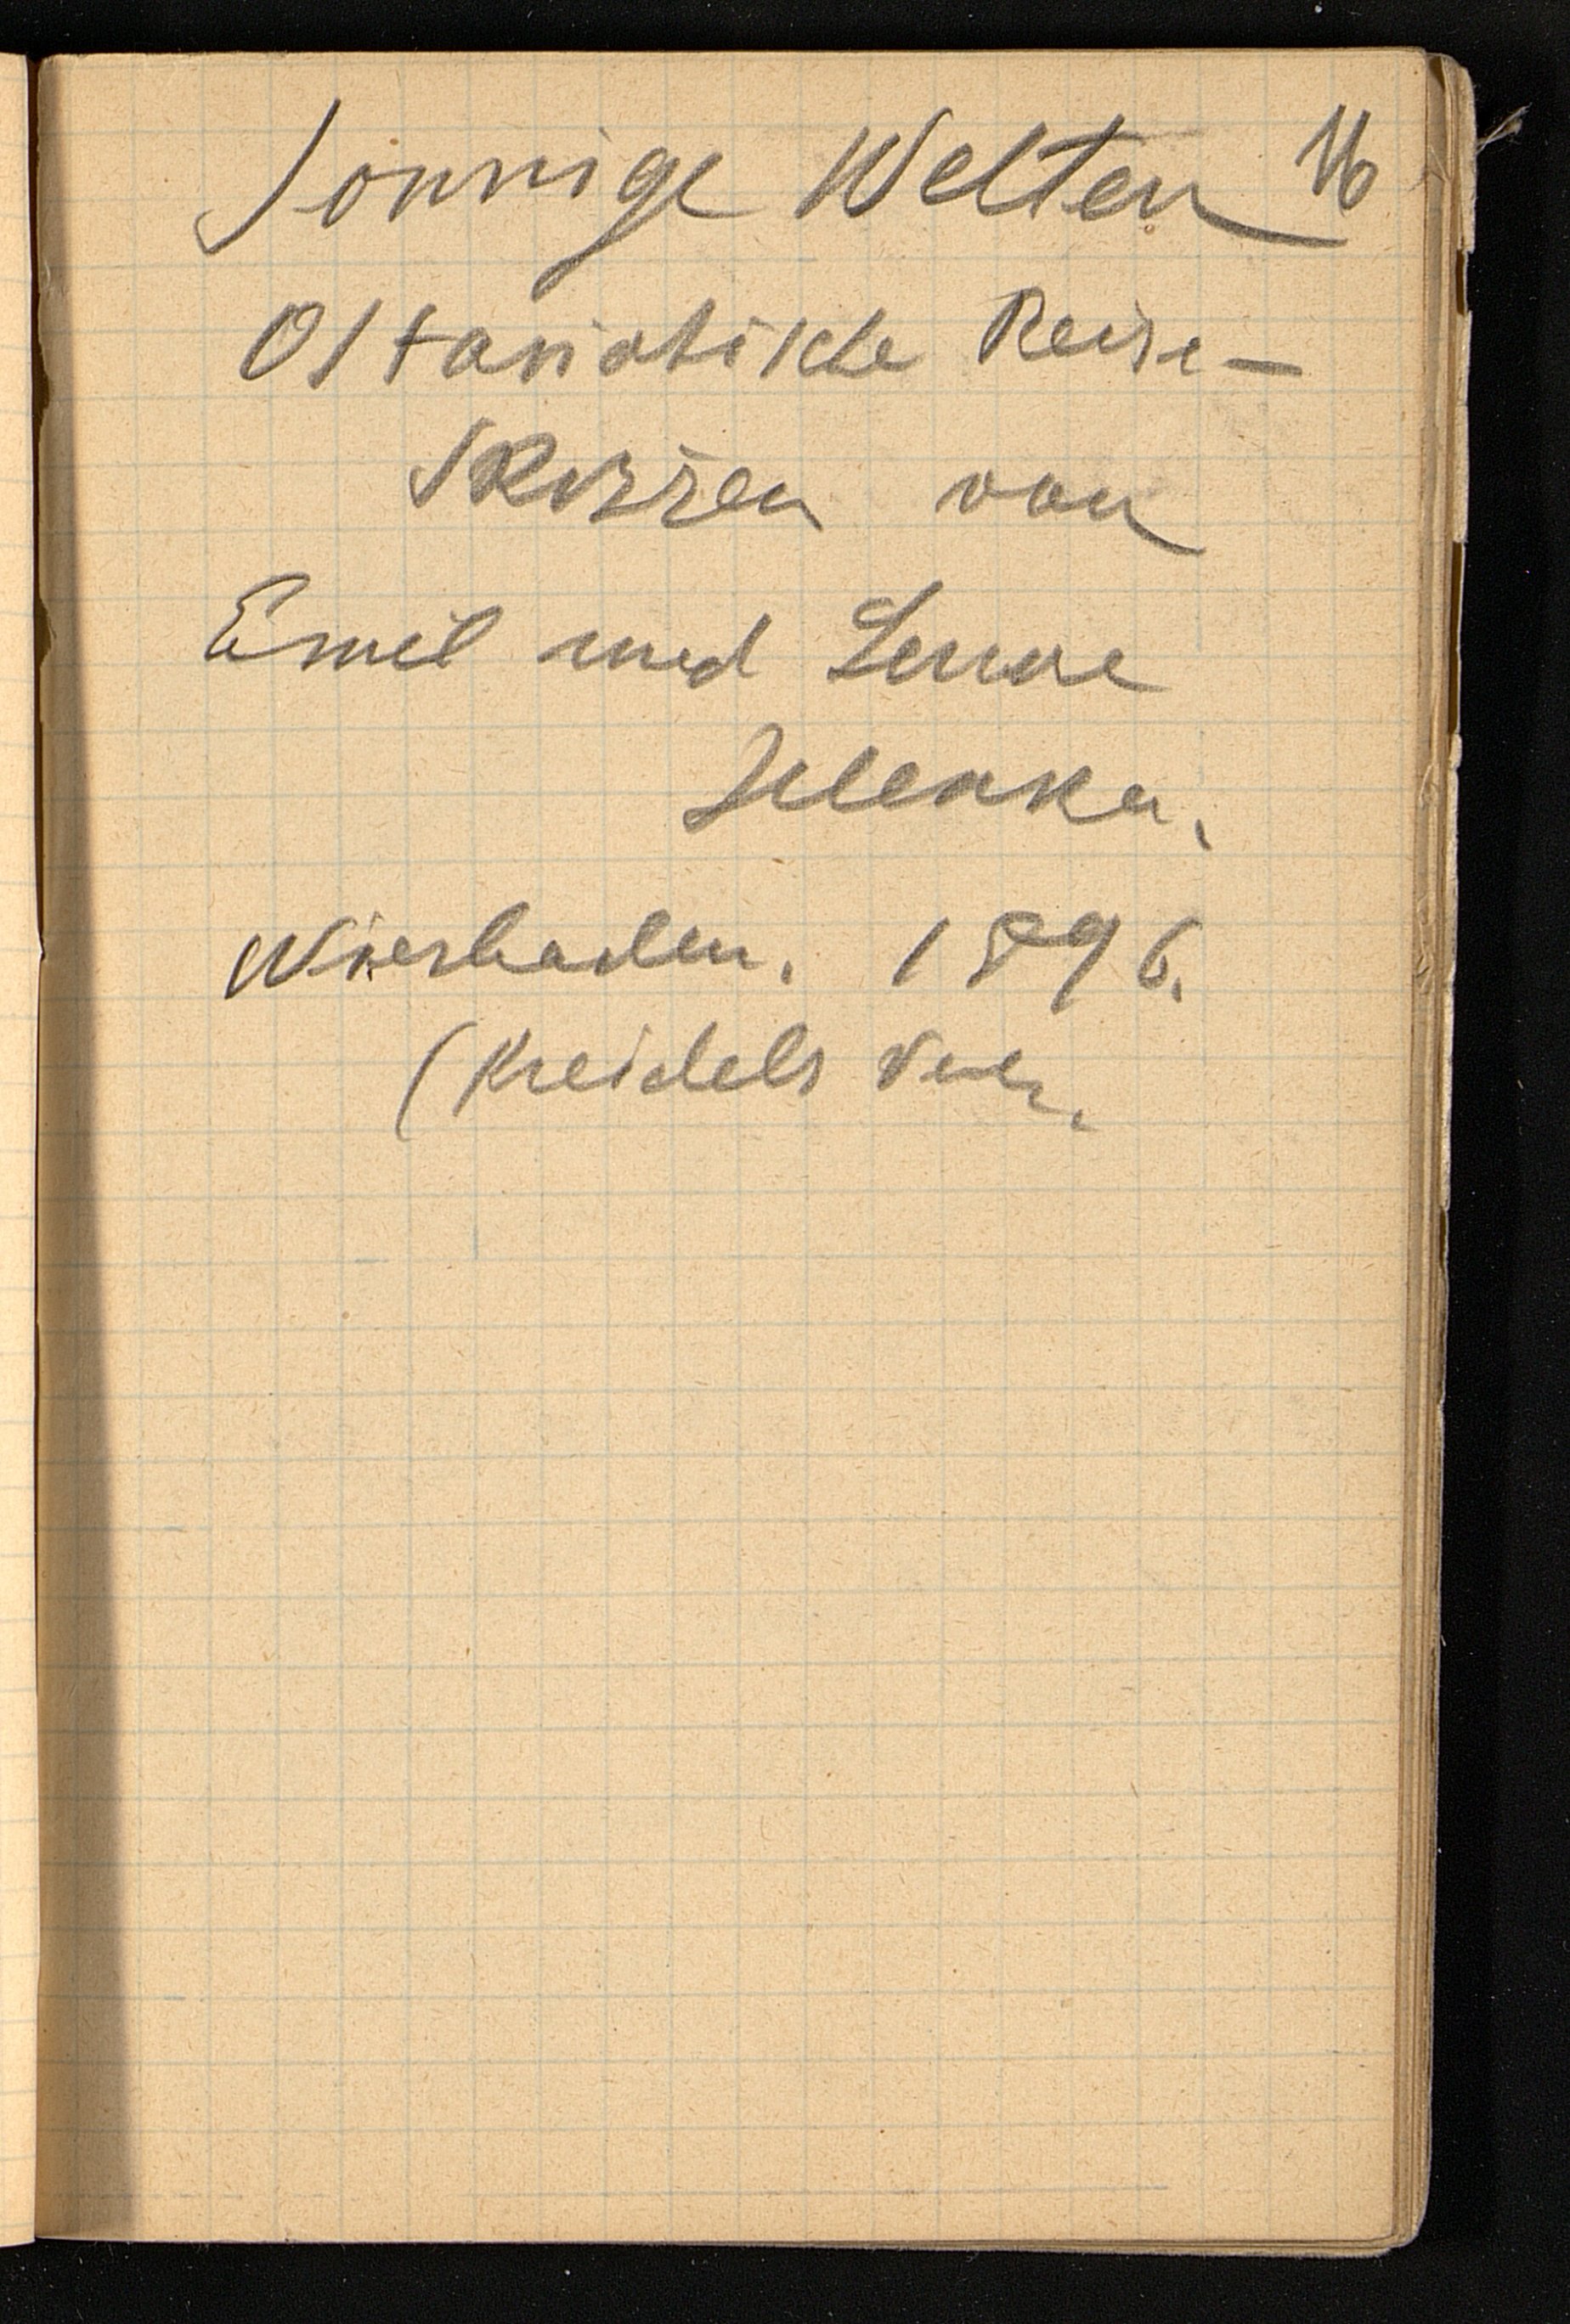 Sonnige Welten 16
Ostasiatische Reise-
Skizzen von
Emil und Lenore
Selenka.
Wiesbaden. 1896.
(Kreidels Verl.